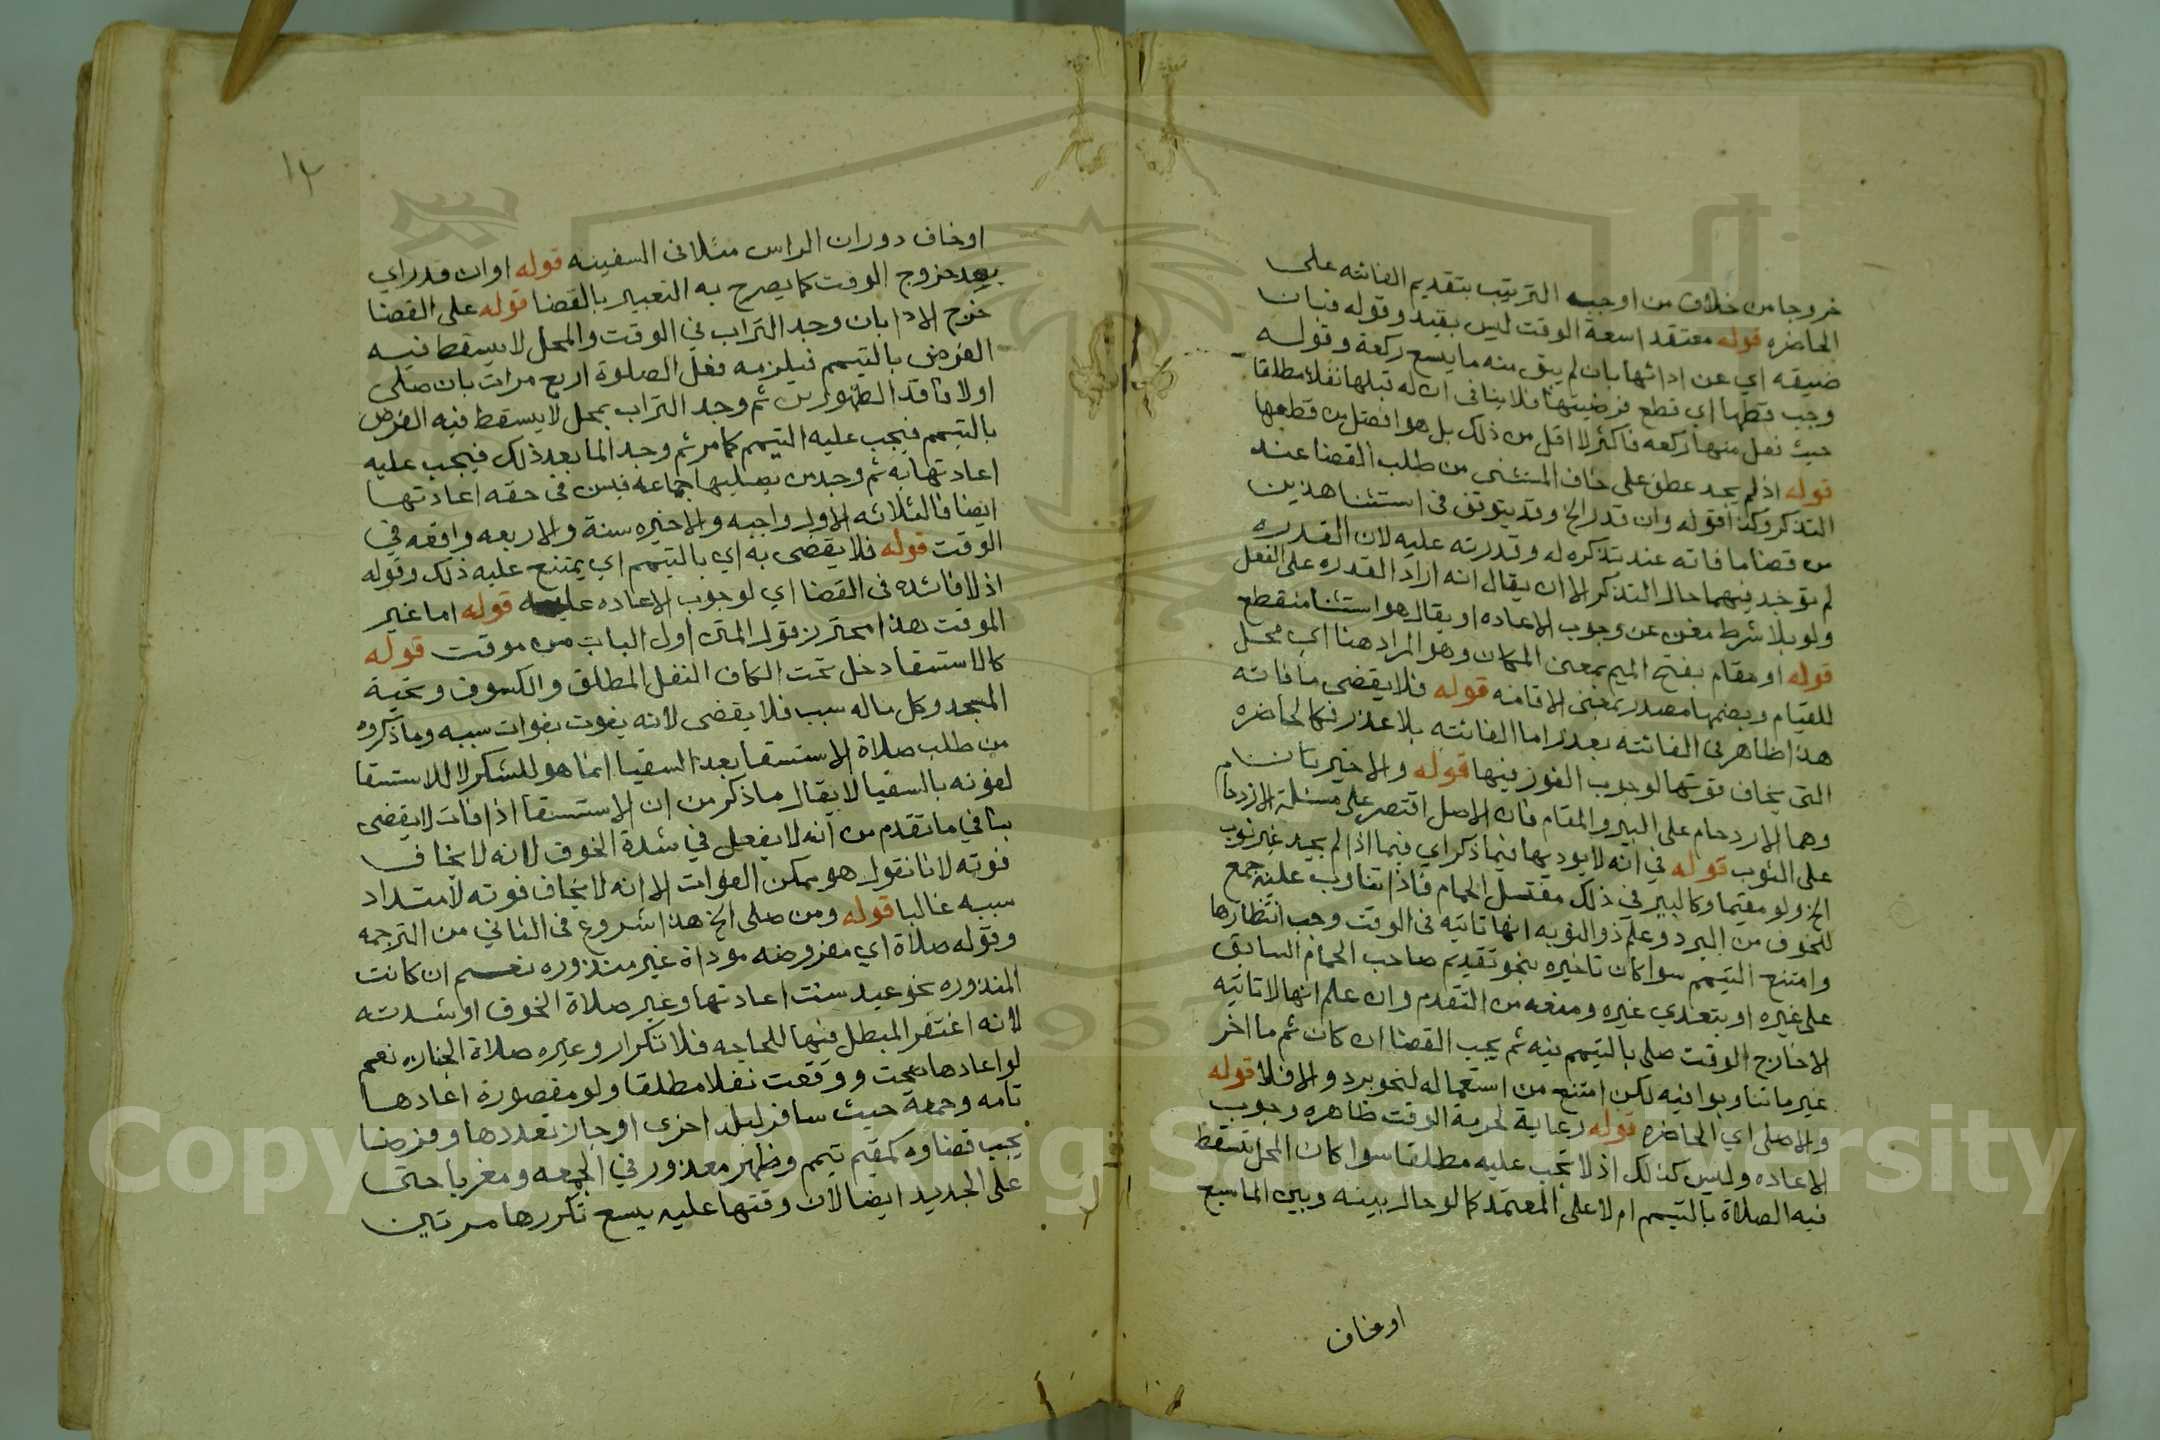 خروجا من خلاف من اوجب الترتيب بتقديم الفائته على
الحاضره قوله معتقد اسعة الوقت ليس بقيد وقوله فبان
ضيقه اي عن ادائها بان لم يبق منه ما يسع ركعة وقوله
وجب قطعها اي قطع فرضيتها فلا ينافى ان له قبلها نفلا مطلقا
حيث فعل منها ركعه فاكثر لا اقل من ذلك بل هو افضل من قطعها
قوله اذ لم يجد عطف على خاف المستثنى من طلب القضا عند
التذكر وكذا قوله وان قدر الخ وقد يتوقف فى استثنا هذين
من قضا ما فاته عند تذكره له وقدرته عليه لان القدره
لم توجد فيهما حال التذكر الا ان يقال انه اراد القدره على الفعل
ولو بلا شرط مغن عن وجوب الاعاده او يقال هو استثنا منقطع
قوله او مقام بفتح الميم بمعنى المكان وهو المراد هنا اي محل
للقيام وبضمها مصدر بمعنى الاقامه قوله فلا يقضى ما فاته
هذا ظاهر فى الفائته بعذر اما الفائته بلا عذر فكالحاضره
التى يخاف فوتها لوجوب الفور فيها قوله والاخيرتان
وهما الازدحام على البير والمقام فان الاصل اقتصر على مسئلة الازدحام
على الثوب قوله في انه لا يوديها فيما ذكر اي فيما اذا لم يجد غير ثوب
الخ ولو مقيما وكالبير فى ذلك مغتسل الحمام فاذا تناوب عليه جمع
للخوف من البرد وعلم ذو النوبه انها تاتيه فى الوقت وجب انتظارها
وامتنع التيمم سوا كان تاخيره بنحو تقديم صاحب الحمام السابق
على غيره او بتعدي غيره ومنعه من التقدم وان علم انها لا تاتيه
الا خارج الوقت صلى بالتيمم فيه ثم يجب القضا ان كان ثم ما اخر
غير ما تناوبوا فيه لكن امتنع من استعماله لنحو برد والا فلا قوله
والا صلى اي الحاضره قوله رعاية لحرمة الوقت ظاهره وجوب
الاعاده وليس كذلك اذ لا تجب عليه مطلقا سوا كان المحل تسقط
فيه الصلاة بالتيمم ام لا على المعتمد كما لو حال بينه وبين الما سبع
او خاف
١٢
او خاف دوران الراس مثلا فى السفينه قوله او ان قدر اي
بعد خروج الوقت كما يصرح به التعبير بالقضا قوله على القضا
خرج الادا بان وجد التراب في الوقت والمحل لا يسقط فيه
الفرض بالتيمم فيلزمه فعل الصلوة اربع مرات بان صلى
اولا فاقد الطهورين ثم وجد التراب بمحل لا يسقط فيه الفرض
بالتيمم فيجب عليه التيمم كما مر ثم وجد الما بعد ذلك فيجب عليه
اعادتها به ثم وجد من يصليها جماعه فيسن فى حقه اعادتها
ايضا فالثلاثه الاول واجبه والاخيره سنة والاربعه واقعه في
الوقت قوله فلا يقضى به اي بالتيمم اي يمتنع عليه ذلك وقوله
اذ لا فائده فى القضا اي لوجوب الاعاده عليه قوله اما غير
الموقت هذا محترز قول المتن اول الباب من موقت قوله
كالاستسقا دخل تحت الكاف النفل المطلق والكسوف وتحية
المسجد وكل ماله سبب فلا يقضى لانه يفوت بفوات سببه وما ذكروه
من طلب صلاة الاستسقا بعد السقيا انما هو للشكر لا للاستسقا
لفوته بالسقيا لا يقال ما ذكر من ان الاستسقا اذا فات لا يقضى
ينافي ما تقدم من انه لا يفعل في شدة الخوف لانه لا يخاف
فوته لانا نقول هو ممكن الفوات الا انه لا يخاف فوته لامتداد
سببه غالبا قوله ومن صلى الخ هذا شروع فى الثاني من الترجمه
وقوله صلاة اي مفروضه موداة غير منذوره نعم ان كانت
المنذوره نحو عيد سنت اعادتها وغير صلاة الخوف او شدته
لانه اغتفر المبطل فيها للحاجه فلا تكرار وغيره صلاة الجنازه نعم
لو اعادها صحت ووقعت نفلا مطلقا ولو مقصورة اعادها
تامه وجمعة حيث سافر لبلد اخرى او جاز تعددها وفرضا
يجب قضاوه كمقيم تيمم وظهر معذور في الجمعه ومغربا حتى
على الجديد ايضا لان وقتها عليه يسع تكررها مرتين
Copyright © King Saud University
1957